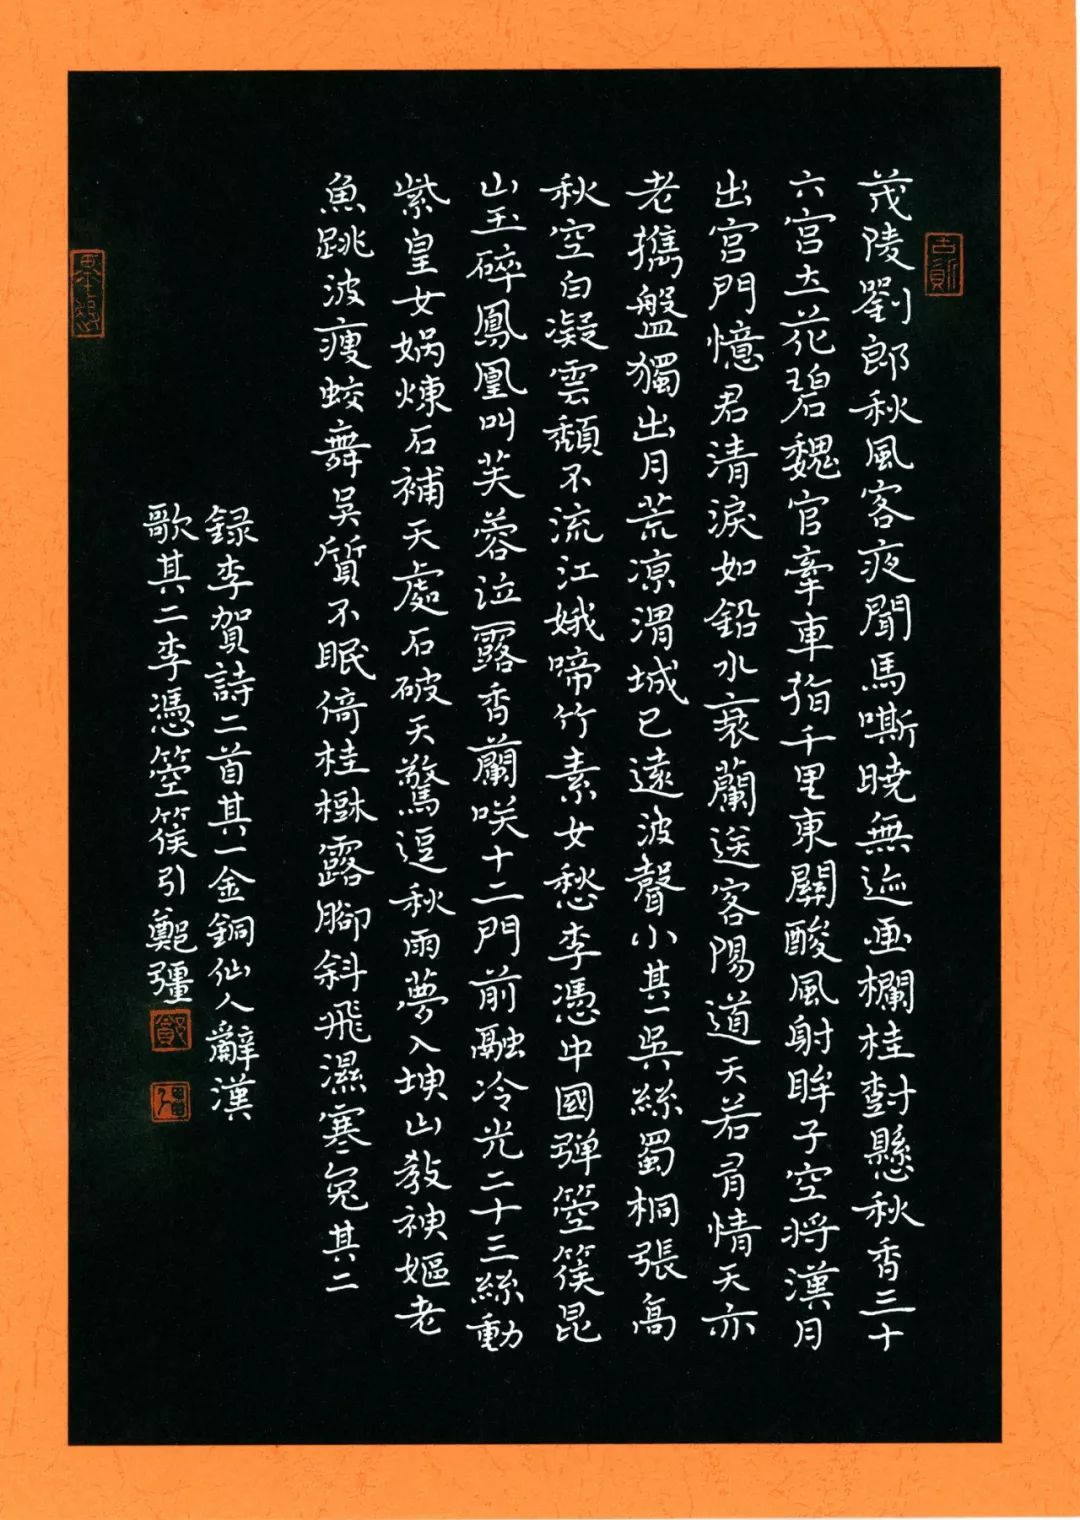 茂陵劉郎秋風客夜聞馬嘶曉無迹画欄桂樹懸秋香三十
六宫土花碧魏官牽車指千里東關酸風射眸子空将漢月
出宫門憶君清淚如鉛水衰蘭送客陽道天若有情天亦
老攜盤獨出月荒凉渭城已遠波聲小其一吳絲蜀桐張高
秋空白凝雲頹不流江娥啼竹素女愁李憑中國彈箜篌昆
山玉碎鳳凰叫芙蓉泣露香蘭咲十二門前融冷光二十三絲動
紫皇女媧煉石補天處石破天驚逗秋雨夢入坤山教神嫗老
魚跳波瘦蛟舞吳質不眠倚桂樹露腳斜飛濕寒兔其二
録李賀詩二首其一金銅仙人辭漢
歌其二李憑箜篌引鄭彊